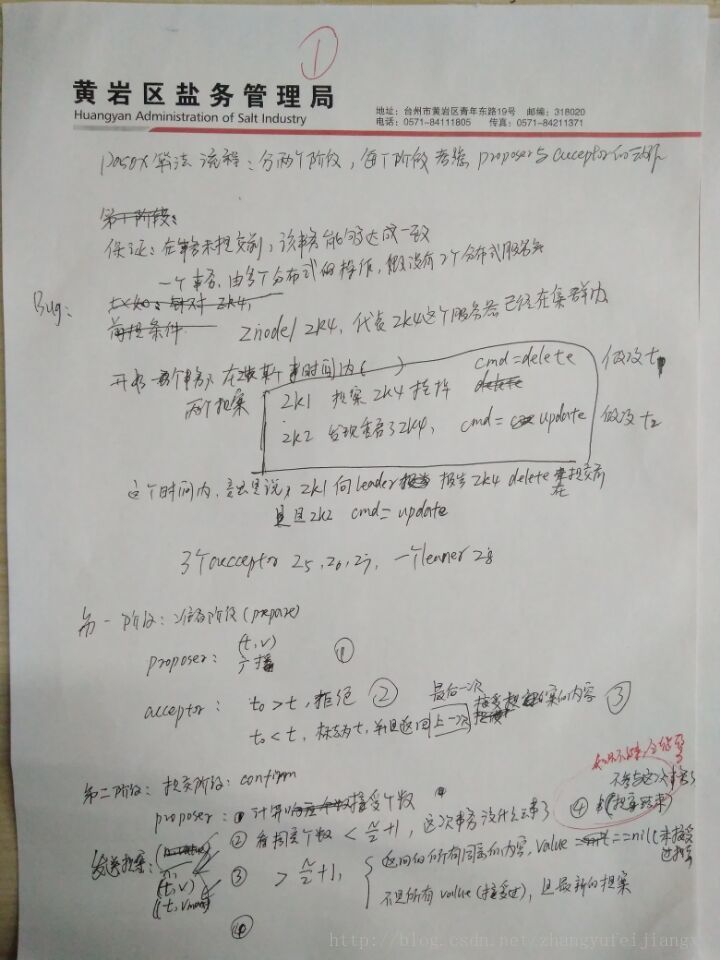 ①
黄岩区盐务管理局
Huangyan Administration of Salt Industry
地址：台州市黄岩区青年东路19号 邮编：318020
电话：0571-84111805 传真：0571-84211371
算法流程：分两个阶段，每个阶段考虑 proposer与acceptor的动作
第一阶段：
保证：在事务未提交前，该事务能够达成一致
一个事务，由多个分布式的操作，假设有2个分布式服务
Bug：
前提条件 znode1 zk4，代表zk4这个服务器已经在集群内
开始 在某个时间内（ ）
两个提案
zk1 提案 zk4 挂掉 cmd=delete 假设t1
zk2 发现重启了zk4， cmd= update 假设t2
这个时间内，意思是说，zk1向leader 报告 zk4 delete 在提交前
且zk2 cmd=update
3个acceptor z5,z6,z7，一个learner z8
第一阶段：准备阶段(prepare)
proposer： (t,v) 广播 ①
acceptor： t0>t，拒绝 ② 最后一次接受提案的内容 ③
t0<t，标志为t，并且返回上一次
第二阶段：提交阶段：confirm
proposer： ① 计算 接受个数
② 看同意个数 < N/2+1，这次事务没什么事了 ④ (提案结束)
不参与这个事务了
发送提案：
(t,v)
(t,vmax)
③ > N/2+1，
返回的所有同意的内容，value ==nil（未接受过提案
不是所有value（接受过），且最新的提案
④
http://blog.csdn.net/zhangyufeijiangx